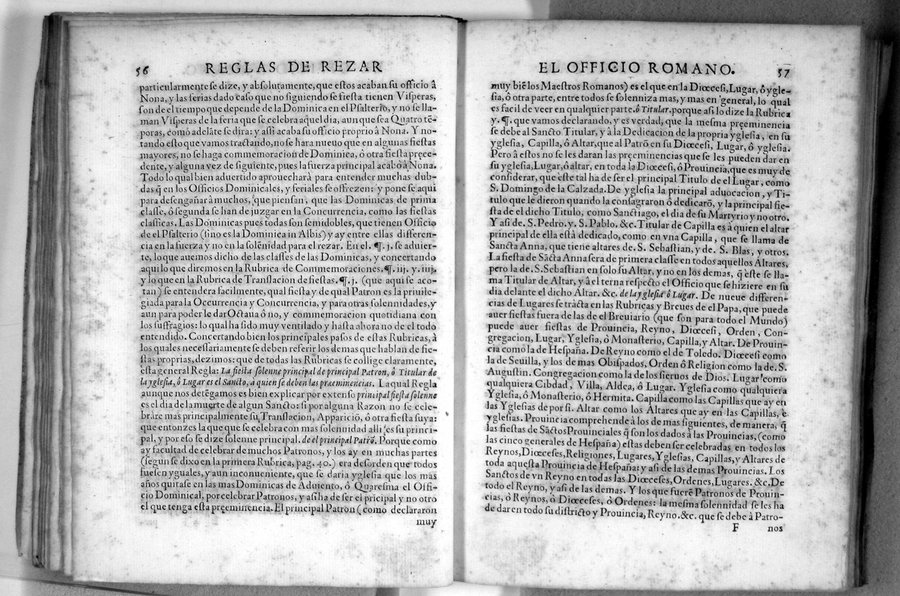 56 REGLAS DE REZAR
particularmente se dize, y absolutamente, que estos acaban su officio â
Nona, y las ferias dado caso que no siguiendo se fiesta tienen Visperas,
son de el tiempo que depende de la Dominica en el Psalterio, y no se lla-
man Visperas de la feria que se celebra aquel dia, aunque sea Quatro tē-
poras, como adelāte se dira: y assi acaba su officio proprio â Nona. Y no-
tando esto que vamos tractando, no se hara nueuo que en algunas fiestas
mayores, no se haga commemoracion de Dominica, ô otra fiesta prece-
dente, y alguna vez de siguiente, pues la fuerza principal acabô â Nona.
Todo lo qual bien aduertido aprouechará para entender muchas dub-
das q̄ en los Officios Dominicales, y feriales se offrezen: y pone se aqui
para desengañar â muchos, que piensan, que las Dominicas de prima
classe, ô segunda se han de juzgar en la Concurrencia, como las fiestas
classicas. Las Dominicas pues todas son semidobles, que tienen Officio
de el Psalterio (sino es la Dominica in Albis) y ay entre ellas differen-
cia en la fuerza y no en la solēnidad para el rezar. En el. ¶. j. se aduier-
te, lo que auemos dicho de las classes de las Dominicas, y concertando
aqui lo que diremos en la Rubrica de Commemoraciones. ¶. iij. y. iiij.
y lo que en la Rubrica de Translacion de fiestas. ¶. j. (que aqui se aco-
tan) se entendera facilmente, qual fiesta y de qual Patron es la priuile-
giada para la Occurrencia y Concurrencia, y para otras solennidades, y
aun para poder le dar Octaua ô no, y commemoracion quotidiana con
los suffragios: lo qual ha sido muy ventilado y hasta ahora no de el todo
entendido. Concertando bien los principales passos de estas Rubricas, â
los quales necessariamente se deben referir los demas que hablan de fie-
stas proprias, dezimos: que de todas las Rubricas se collige claramente,
esta general Regla: La fiesta solenne principal de principal Patron, ô Titular de
la yglesia, ô Lugar es el Sancto, a quien se deben las preeminencias. La qual Regla
aunque nos detēgamos es bien explicar por extenso principal fiesta solenne
es el dia de la muerte de algun Sancto: si por alguna Razon no se cele-
brâre mas principalmente su Translacion, Appariciō, ô otra fiesta suya:
que entonzes la que que se celebra con mas solennidad alli es su princi-
pal, y por eso se dize solenne principal. de el principal Patrō. Porque como
ay facultad de celebrar de muchos Patronos, y los ay en muchas partes
(segun se dixo en la primera Rubrica, pag. 40.) era desorden que todos
fuesen yguales, y aun inconueniente, que se daria yglesia que los mas
años quitase en las mas Dominicas de Aduiento, ô Quaresma el Offi-
cio Dominical, por celebrar Patronos, y asi ha de ser el pricipal y no otro
el que tenga esta preeminencia. El principal Patron (como declararon
muy
EL OFFICIO ROMANO. 57
muy biē los Maestros Romanos) es el que en la Diœcesi, Lugar, ô ygle-
sia, ô otra parte, entre todos se solenniza mas, y mas en general, lo qual
es facil de veer en qualquier parte. ô Titular. porque asi lo dize la Rubrica
y. ¶. que vamos declarando, y es verdad, que la mesma preeminencia
se debe al Sancto Titular, y â la Dedicacion de la propria yglesia, en su
yglesia, Capilla, ô Altar, que al Patrō en su Diœcesi, Lugar, ô yglesia.
Pero â estos no se les daran las preeminencias que se les pueden dar en
su yglesia, Lugar, ô altar, en toda la Diœcesi, ô Prouincia, que es muy de
considerar, que este tal ha de ser el principal Titulo de el Lugar, como
S. Domingo de la Calzada. De yglesia la principal aduocacion, y Ti-
tulo que le dieron quando la consagraron ô dedicarō, y la principal fie-
sta de el dicho Titulo, como Sanctiago, el dia de su Martyrio y no otro.
Y asi de. S. Pedro, y. S. Pablo. &c. Titular de Capilla es â quien el altar
principal de ella está dedicado, como en vna Capilla, que se llama de
Sancta Anna, que tiene altares de. S. Sebastian, y de. S. Blas, y otros.
La fiesta de Sācta Anna sera de primera classe en todos aquellos Altares,
pero la de. S. Sebastian en solo su Altar, y no en los demas, q̄ este se lla-
ma Titular de Altar, y â el terna respecto el Officio que se hiziere en su
dia delante el dicho Altar. &c. de la yglesia ô Lugar. De nueue differen-
cias de Lugares se tracta en las Rubricas y Breues de el Papa, que puede
auer fiestas fuera de las de el Breuiario (que son para todo el Mundo)
puede auer fiestas de Prouincia, Reyno, Diœcesi, Orden, Con-
gregacion, Lugar, Yglesia, ô Monasterio, Capilla, y Altar. De Prouin-
cia como la de Hespaña. De Reyno como el de Toledo. Diœcesi como
la de Seuilla, y los de mas Obispados. Orden ô Religion como la de. S.
Augustin. Congregacion como la de los sieruos de Dios. Lugar como
qualquiera Cibdad, Villa, Aldea, ô Lugar. Yglesia como qualquiera
Yglesia, ô Monasterio, ô Hermita. Capilla como las Capillas que ay en
las Yglesias de por si. Altar como los Altares que ay en las Capillas, ê
yglesias. Prouincia comprehende â los de mas siguientes, de manera, q̄
las fiestas de Sāctos Prouinciales q̄ son los dados â las Prouincias, (como
las cinco generales de Hespaña) estas deben ser celebradas en todos los
Reynos, Diœceses, Religiones, Lugares, Yglesias, Capillas, y Altares de
toda aquesta Prouincia de Hespaña: y asi de las demas Prouincias. Los
Sanctos de vn Reyno en todas las Diœceses, Ordenes, Lugares. &c. De
todo el Reyno, y asi de las demas. Y los que fuerē Patronos de Prouin-
cias, ô Reynos, ô Diœceses, ô Ordenes: la mesma solennidad se les ha
de dar en todo su districto y Prouincia, Reyno. &c. que se debe â Patro-
F nos